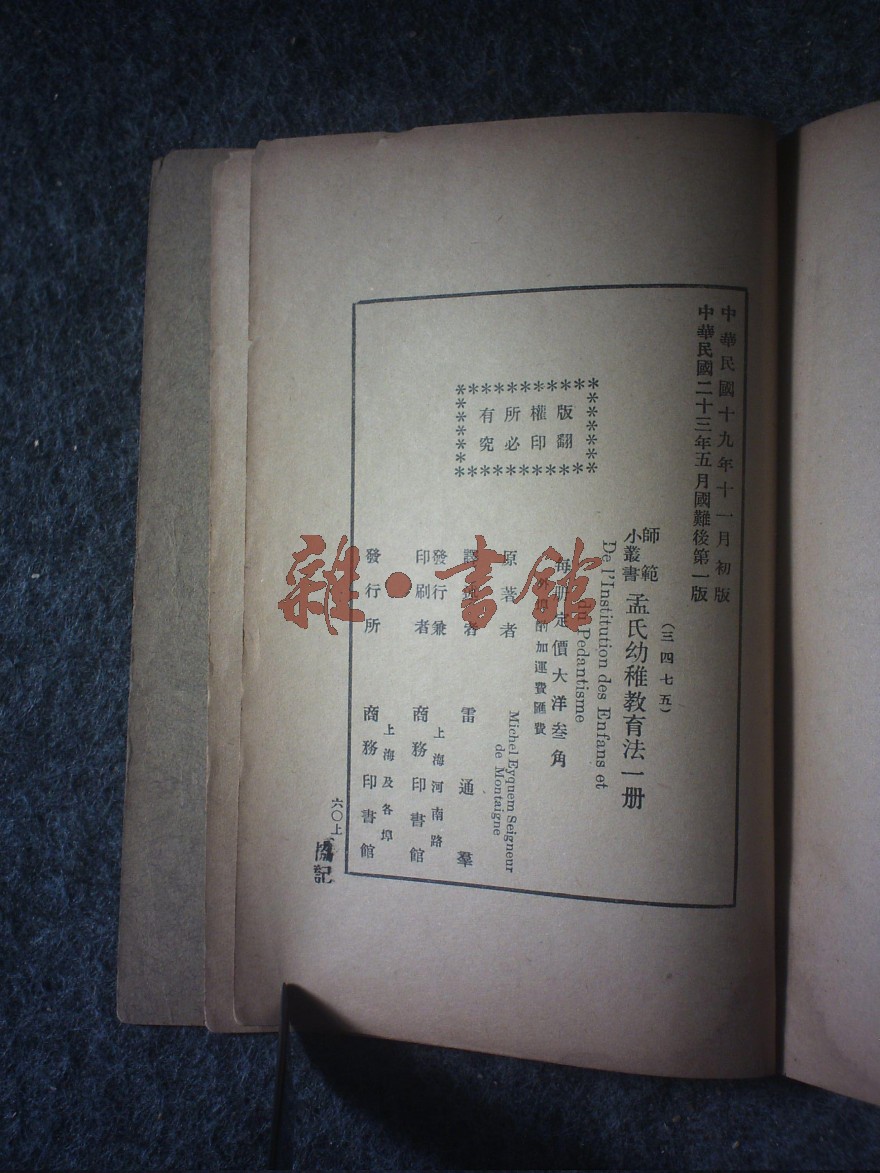 中華民國十九年十一月初版
中華民國二十三年五月國難後第一版
(三四七五)
師範
小叢書
孟氏幼稚教育法一册
De l'Institution des Enfans et
du Pedantisme
每册定價大洋叁角
外埠酌加運費匯費
版權所有
翻印必究
原著者
Michel Eyquem Seigneur
de Montaigne
譯述者
雷通羣
發行兼
印刷者
上海河南路
商務印書館
發行所
上海及各埠
商務印書館
六〇上
協記
雜·書館